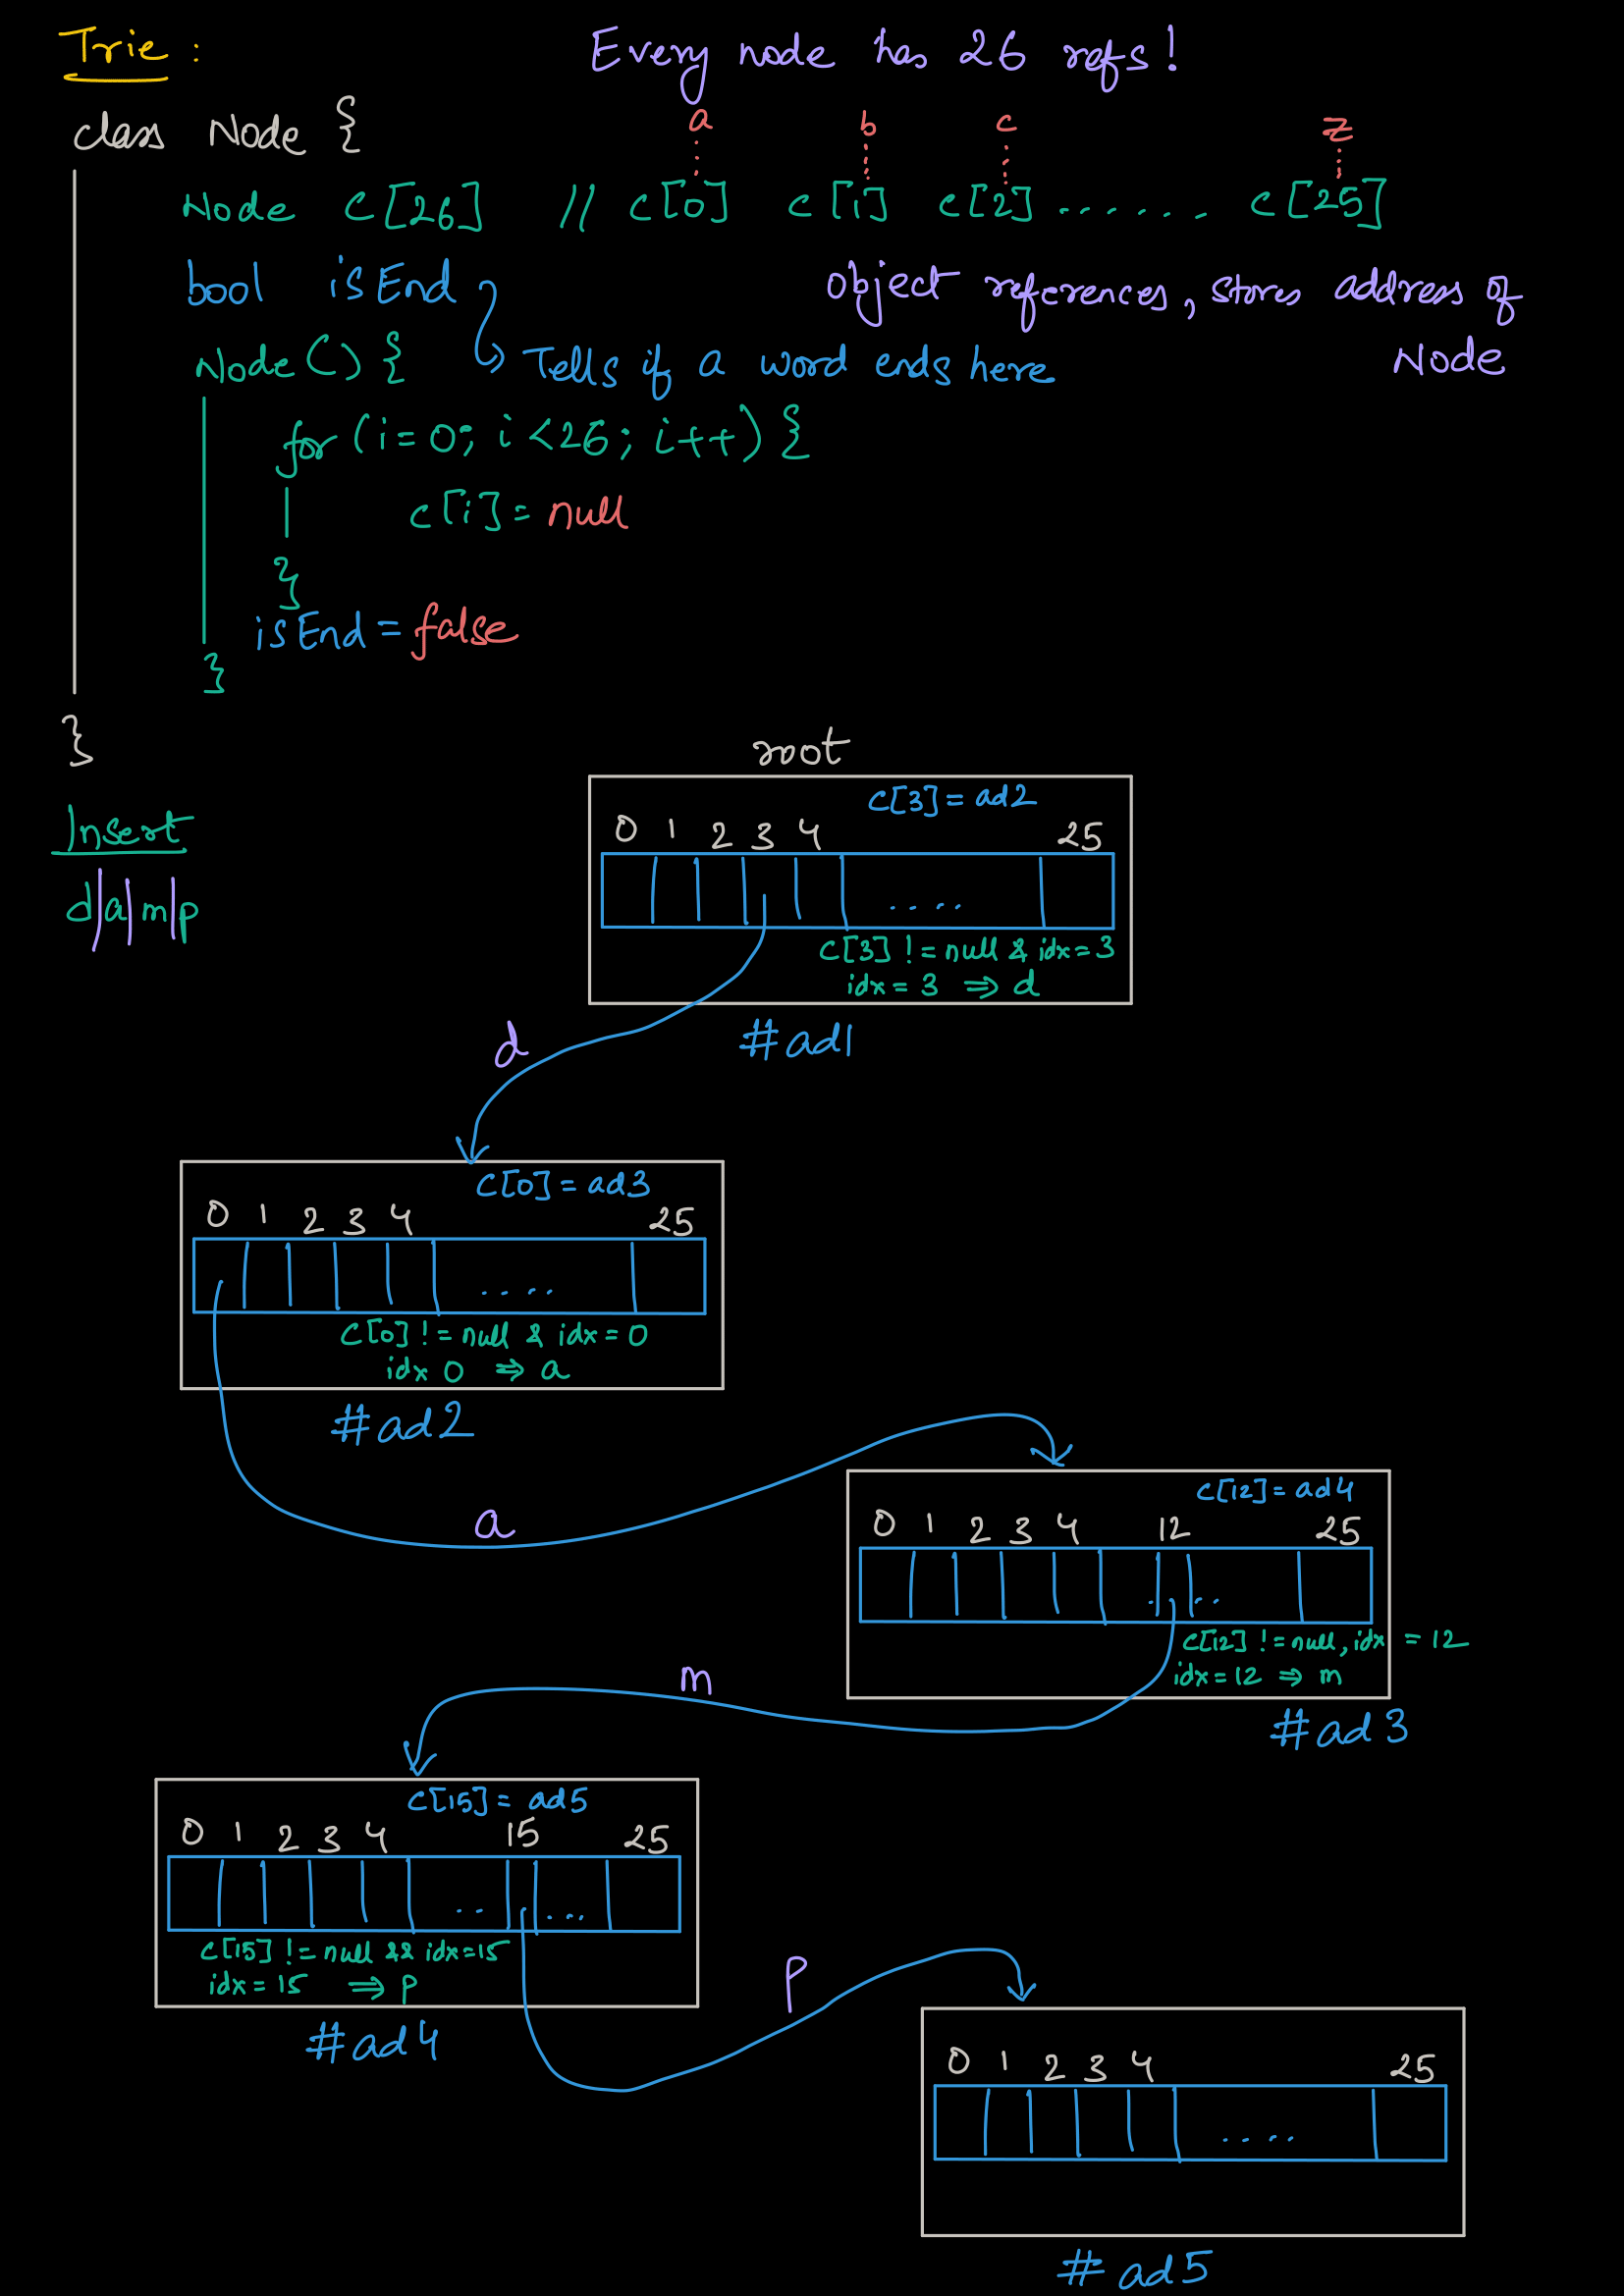 Trie :
Every node has 26 refs!
class Node {
a b c z
Node c[26] // c[0] c[1] c[2] ...... c[25]
bool isEnd
object references, stores address of
Node
Node() {
Tells if a word ends here
for (i=0; i<26; i++) {
c[i] = null
}
isEnd = false
}
}
root
Insert
d|a|m|p
C[3] = ad2
0 1 2 3 4 25
....
C[3] != null & idx = 3
idx = 3 ⇒ d
#ad1
d
C[0] = ad3
0 1 2 3 4 25
....
C[0] != null & idx = 0
idx 0 ⇒ a
#ad2
a
C[12] = ad4
0 1 2 3 4 12 25
....
C[12] != null, idx = 12
idx = 12 ⇒ m
#ad3
m
C[15] = ad5
0 1 2 3 4 15 25
.. ...
C[15] != null && idx=15
idx = 15 ⇒ p
#ad4
p
0 1 2 3 4 25
....
#ad5